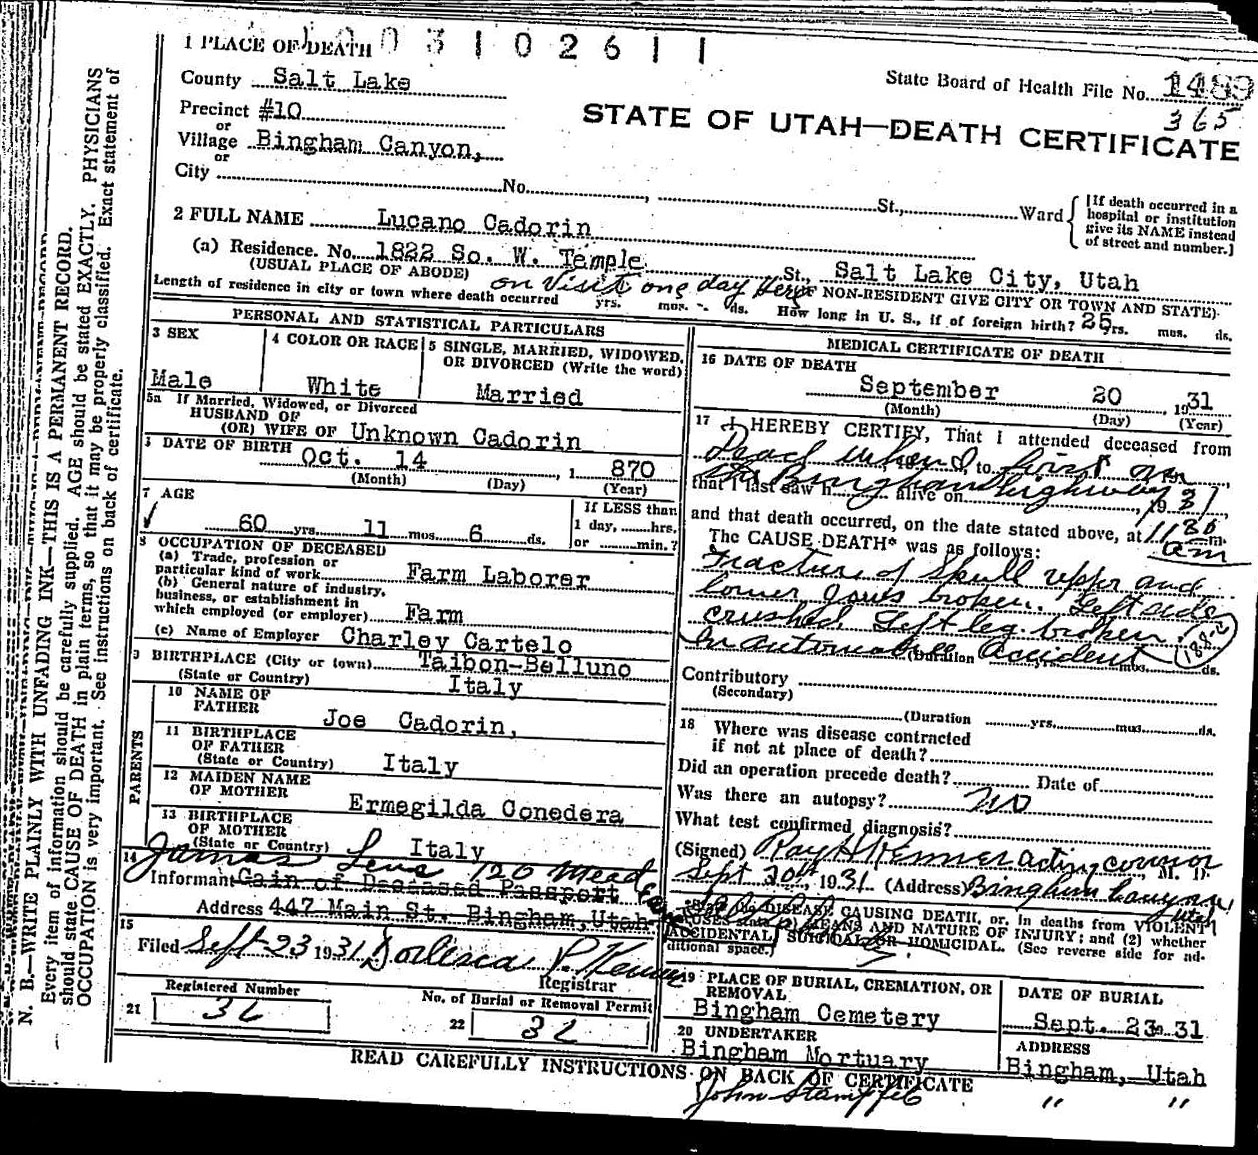 1 PLACE OF DEATH 0 0 3 1 0 2 6 1 1
State Board of Health File No. 1489
365
County Salt Lake
STATE OF UTAH—DEATH CERTIFICATE
Precinct #10
or
Village Bingham Canyon,
or
City No. St., Ward
[If death occurred in a hospital or institution give its NAME instead of street and number.]
2 FULL NAME Lucano Cadorin
(a) Residence. No. 1822 So. W. Temple St., Salt Lake City, Utah
(USUAL PLACE OF ABODE) (IF NON-RESIDENT GIVE CITY OR TOWN AND STATE)
Length of residence in city or town where death occurred yrs. mos. ds. How long in U. S., if of foreign birth? 25 yrs. mos. ds.
on visit one day here
PERSONAL AND STATISTICAL PARTICULARS
3 SEX
Male
4 COLOR OR RACE
White
5 SINGLE, MARRIED, WIDOWED, OR DIVORCED (Write the word)
Married
5a If Married, Widowed, or Divorced
HUSBAND OF
(OR) WIFE OF Unknown Cadorin
DATE OF BIRTH Oct. 14 1 870
(Month) (Day) (Year)
7 AGE
60 yrs. 11 mos. 6 ds.
If LESS than
1 day, hrs.
or min.?
8 OCCUPATION OF DECEASED
(a) Trade, profession or
particular kind of work Farm Laborer
(b) General nature of industry,
business, or establishment in
which employed (or employer) Farm
(c) Name of Employer Charley Cartelo
9 BIRTHPLACE (City or town) Taibon-Belluno
(State or Country) Italy
PARENTS
10 NAME OF
FATHER Joe Cadorin,
11 BIRTHPLACE
OF FATHER
(State or Country) Italy
12 MAIDEN NAME
OF MOTHER Ermegilda Conedera
13 BIRTHPLACE
OF MOTHER
(State or Country) Italy
14 James 120 Mead
Informant Gain of Deceased Passport
Address 447 Main St. Bingham, Utah
15
Filed Sept 23 1931
Registrar
Registered Number
21 32
No. of Burial or Removal Permit
22 32
MEDICAL CERTIFICATE OF DEATH
16 DATE OF DEATH
September 20, 1931
(Month) (Day) (Year)
17 I HEREBY CERTIFY, That I attended deceased from
Dead when I to first on
that I last saw h alive on 1931
the Bingham highway
and that death occurred, on the date stated above, at 1130 m.
am
The CAUSE DEATH* was as follows:
Fracture of Skull upper and
lower jaws broken. Left side
crushed Left leg broken
In automobile accident
188-2
(Duration mos. ds.
Contributory
(Secondary)
(Duration yrs. mos. ds.
18 Where was disease contracted
if not at place of death?
Did an operation precede death? Date of
Was there an autopsy? no
What test confirmed diagnosis?
(Signed) Ray H Kenner acting coronor M. D.
Sept 20th, 1931 (Address) Bingham Canyon, Utah
DISEASE CAUSING DEATH, or, in deaths from VIOLENT
CAUSES, state (1) MEANS AND NATURE OF INJURY; and (2) whether
ACCIDENTAL, SUICIDAL OR HOMICIDAL. (See reverse side for ad-
ditional space.)
19 PLACE OF BURIAL, CREMATION, OR REMOVAL
Bingham Cemetery
DATE OF BURIAL
Sept. 23 31
20 UNDERTAKER
Bingham Mortuary
ADDRESS
Bingham, Utah
READ CAREFULLY INSTRUCTIONS ON BACK OF CERTIFICATE
John " "
N. B.—WRITE PLAINLY WITH UNFADING INK—THIS IS A PERMANENT RECORD.
Every item of information should be carefully supplied. AGE should be stated EXACTLY. PHYSICIANS
should state CAUSE OF DEATH in plain terms, so that it may be properly classified. Exact statement of
OCCUPATION is very important. See instructions on back of certificate.